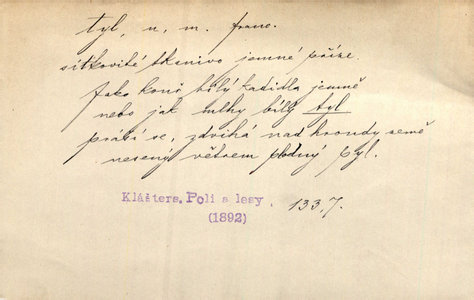 tyl, u, m. franc.
síťkovité tkanivo jemné příze.
Jako kouř bílý kadidla jemně
nebo jak mlhy bílý tyl
práší se, zdvihá nad hroudy země
nesený větrem plodný pyl.
Klášters. Poli a lesy.
(1892) 133,7.